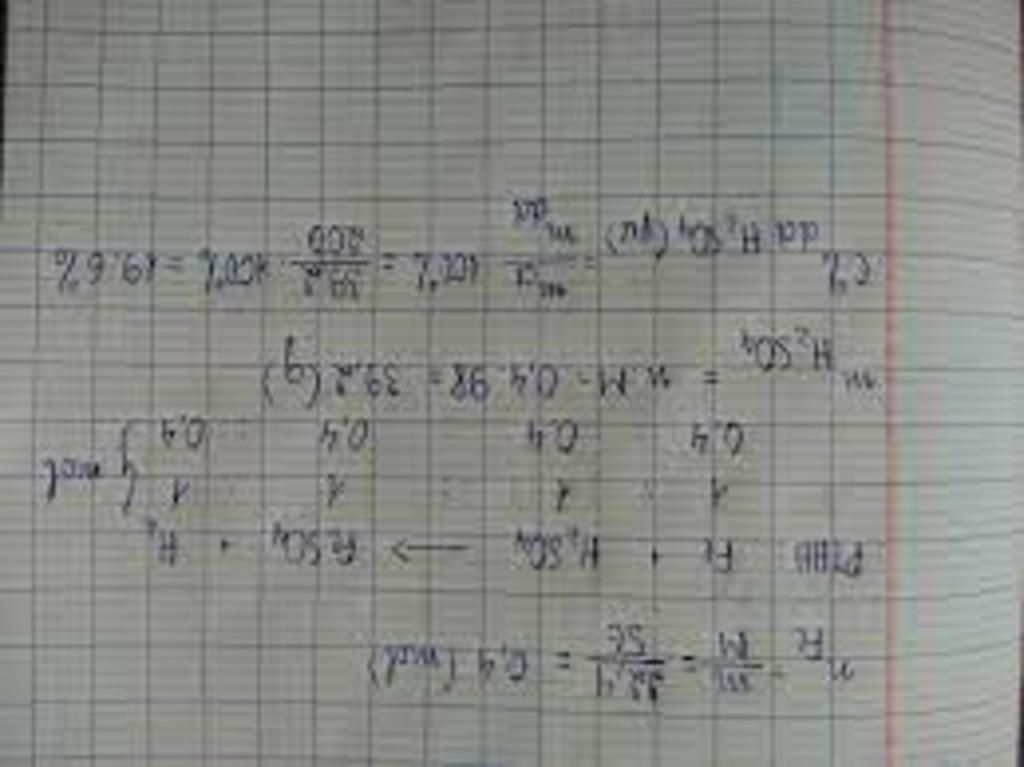 n Fe = m/M = 22,4/56 = 0,4 (mol)
PTHH Fe + H₂SO₄ → FeSO₄ + H₂
1 : 1 : 1 : 1
0,4 0,4 0,4 0,4 } mol
m H₂SO₄ = n.M = 0,4.98 = 39,2 (g)
C% dd H₂SO₄ (pư) = m ct/m dd 100% = 39,2/200 . 100% = 19,6%